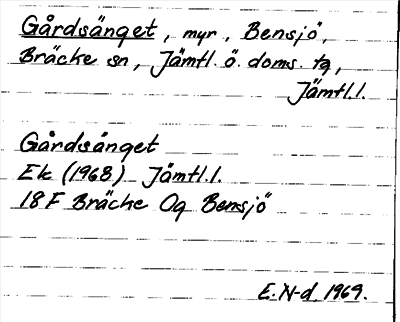 Gårdsänget, myr, Bensjö,
Bräcke sn, Jämtl. ö. doms. tg,
Jämtl.l.
Gårdsänget
Ek (1968) Jämtl.l.
18 F Bräcke Og Bensjö
E. N-d. 1969.